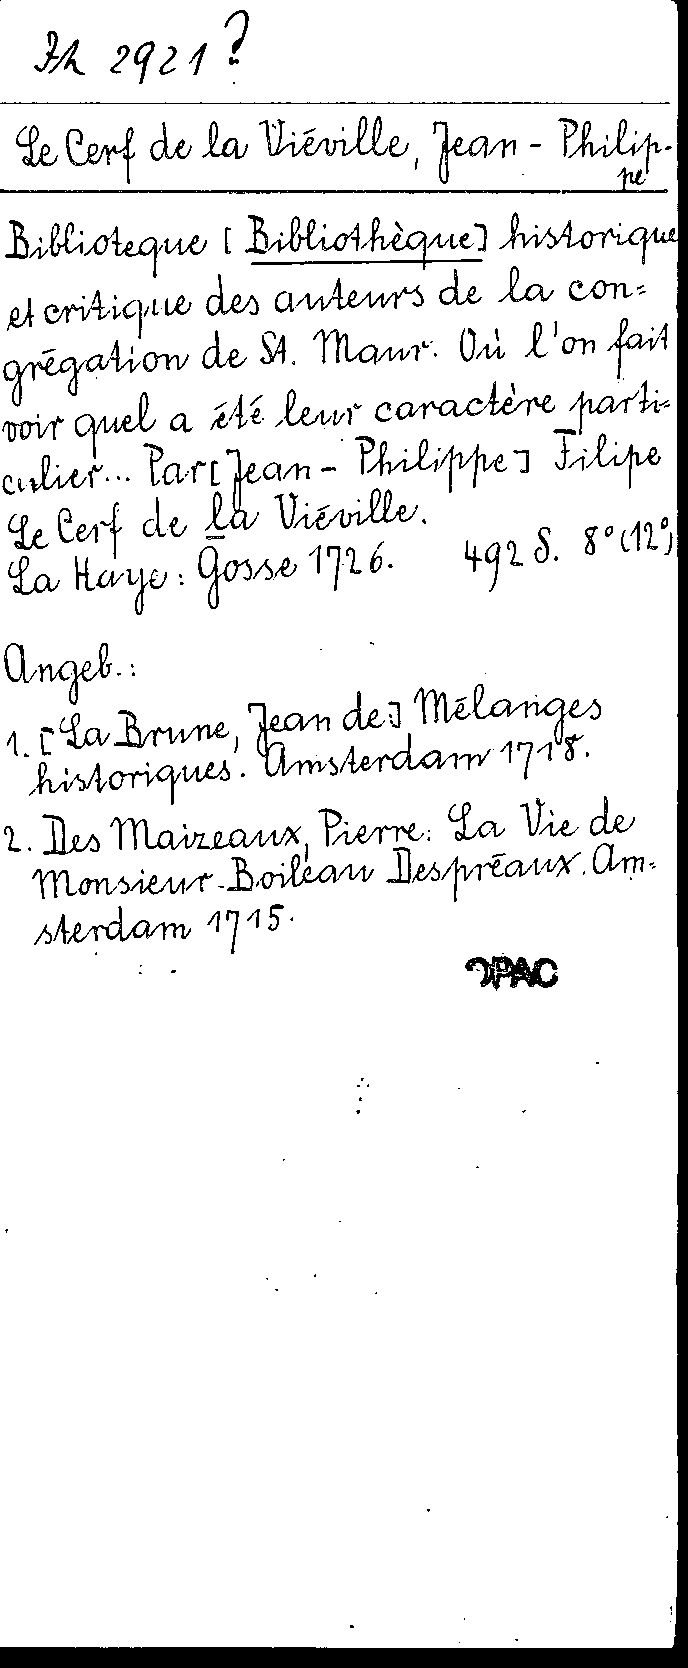 Fh 2921?
Le Cerf de la Viéville, Jean-Philip-
pe
Biblioteque [Bibliothèque] historique
et critique des auteurs de la con=
grégation de St. Maur. Où l'on fait
voir quel a été leur caractère parti=
culier... Par [Jean-Philippe] Filipe
Le Cerf de la Viéville.
La Haye: Gosse 1726. 492 S. 8° (12°)
Angeb.:
1. [La Brune, Jean de] Mélanges
historiques. Amsterdam 1718.
2. Des Maizeaux, Pierre: La Vie de
Monsieur Boileau Despréaux. Am=
sterdam 1715.
OPAC